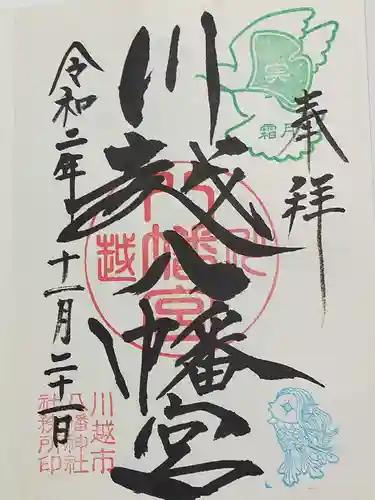 奉拝
霜月
川越八幡宮
川越
八幡宮
令和二年十一月二十一日
川越市
八幡神社
社務所印